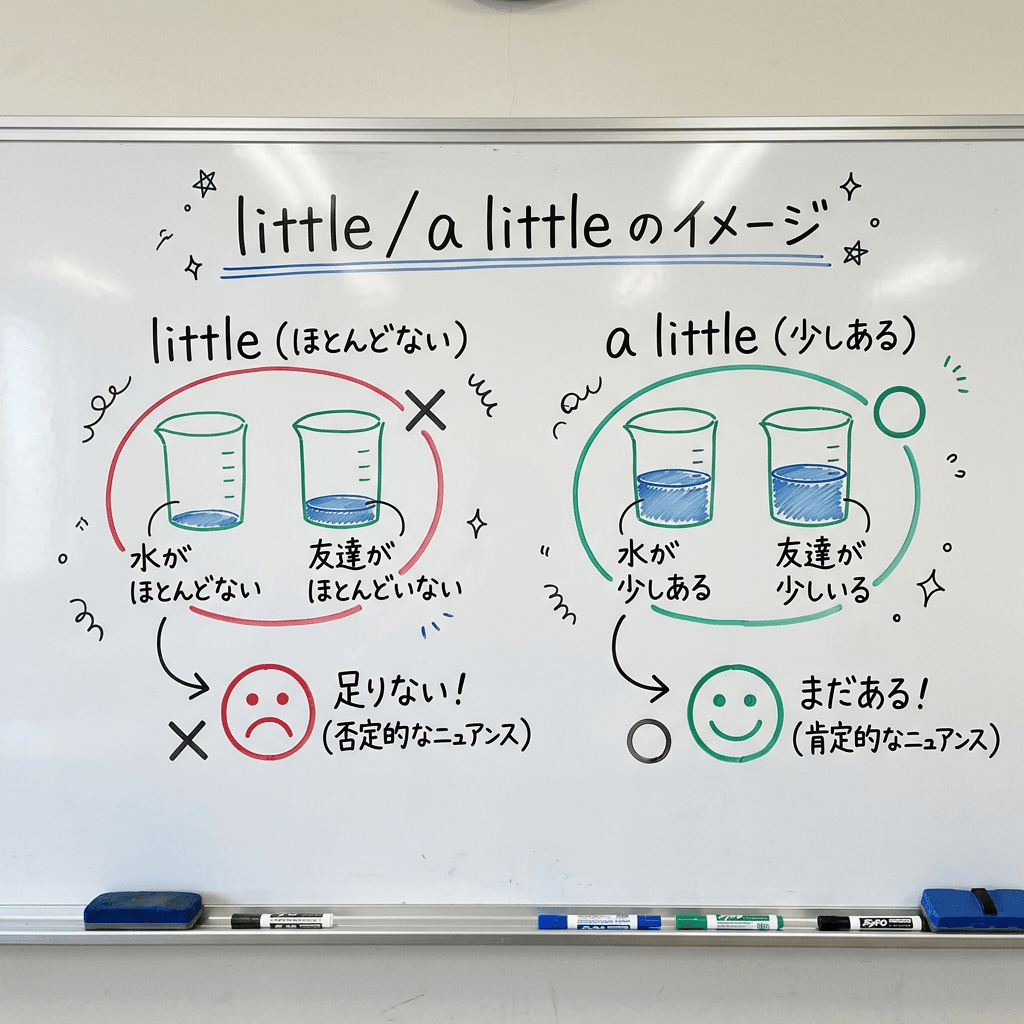 little / a little のイメージ
little (ほとんどない)
水が
ほとんどない
友達が
ほとんどいない
足りない!
(否定的なニュアンス)
a little (少しある)
水が
少しある
友達が
少しいる
まだある!
(肯定的なニュアンス)